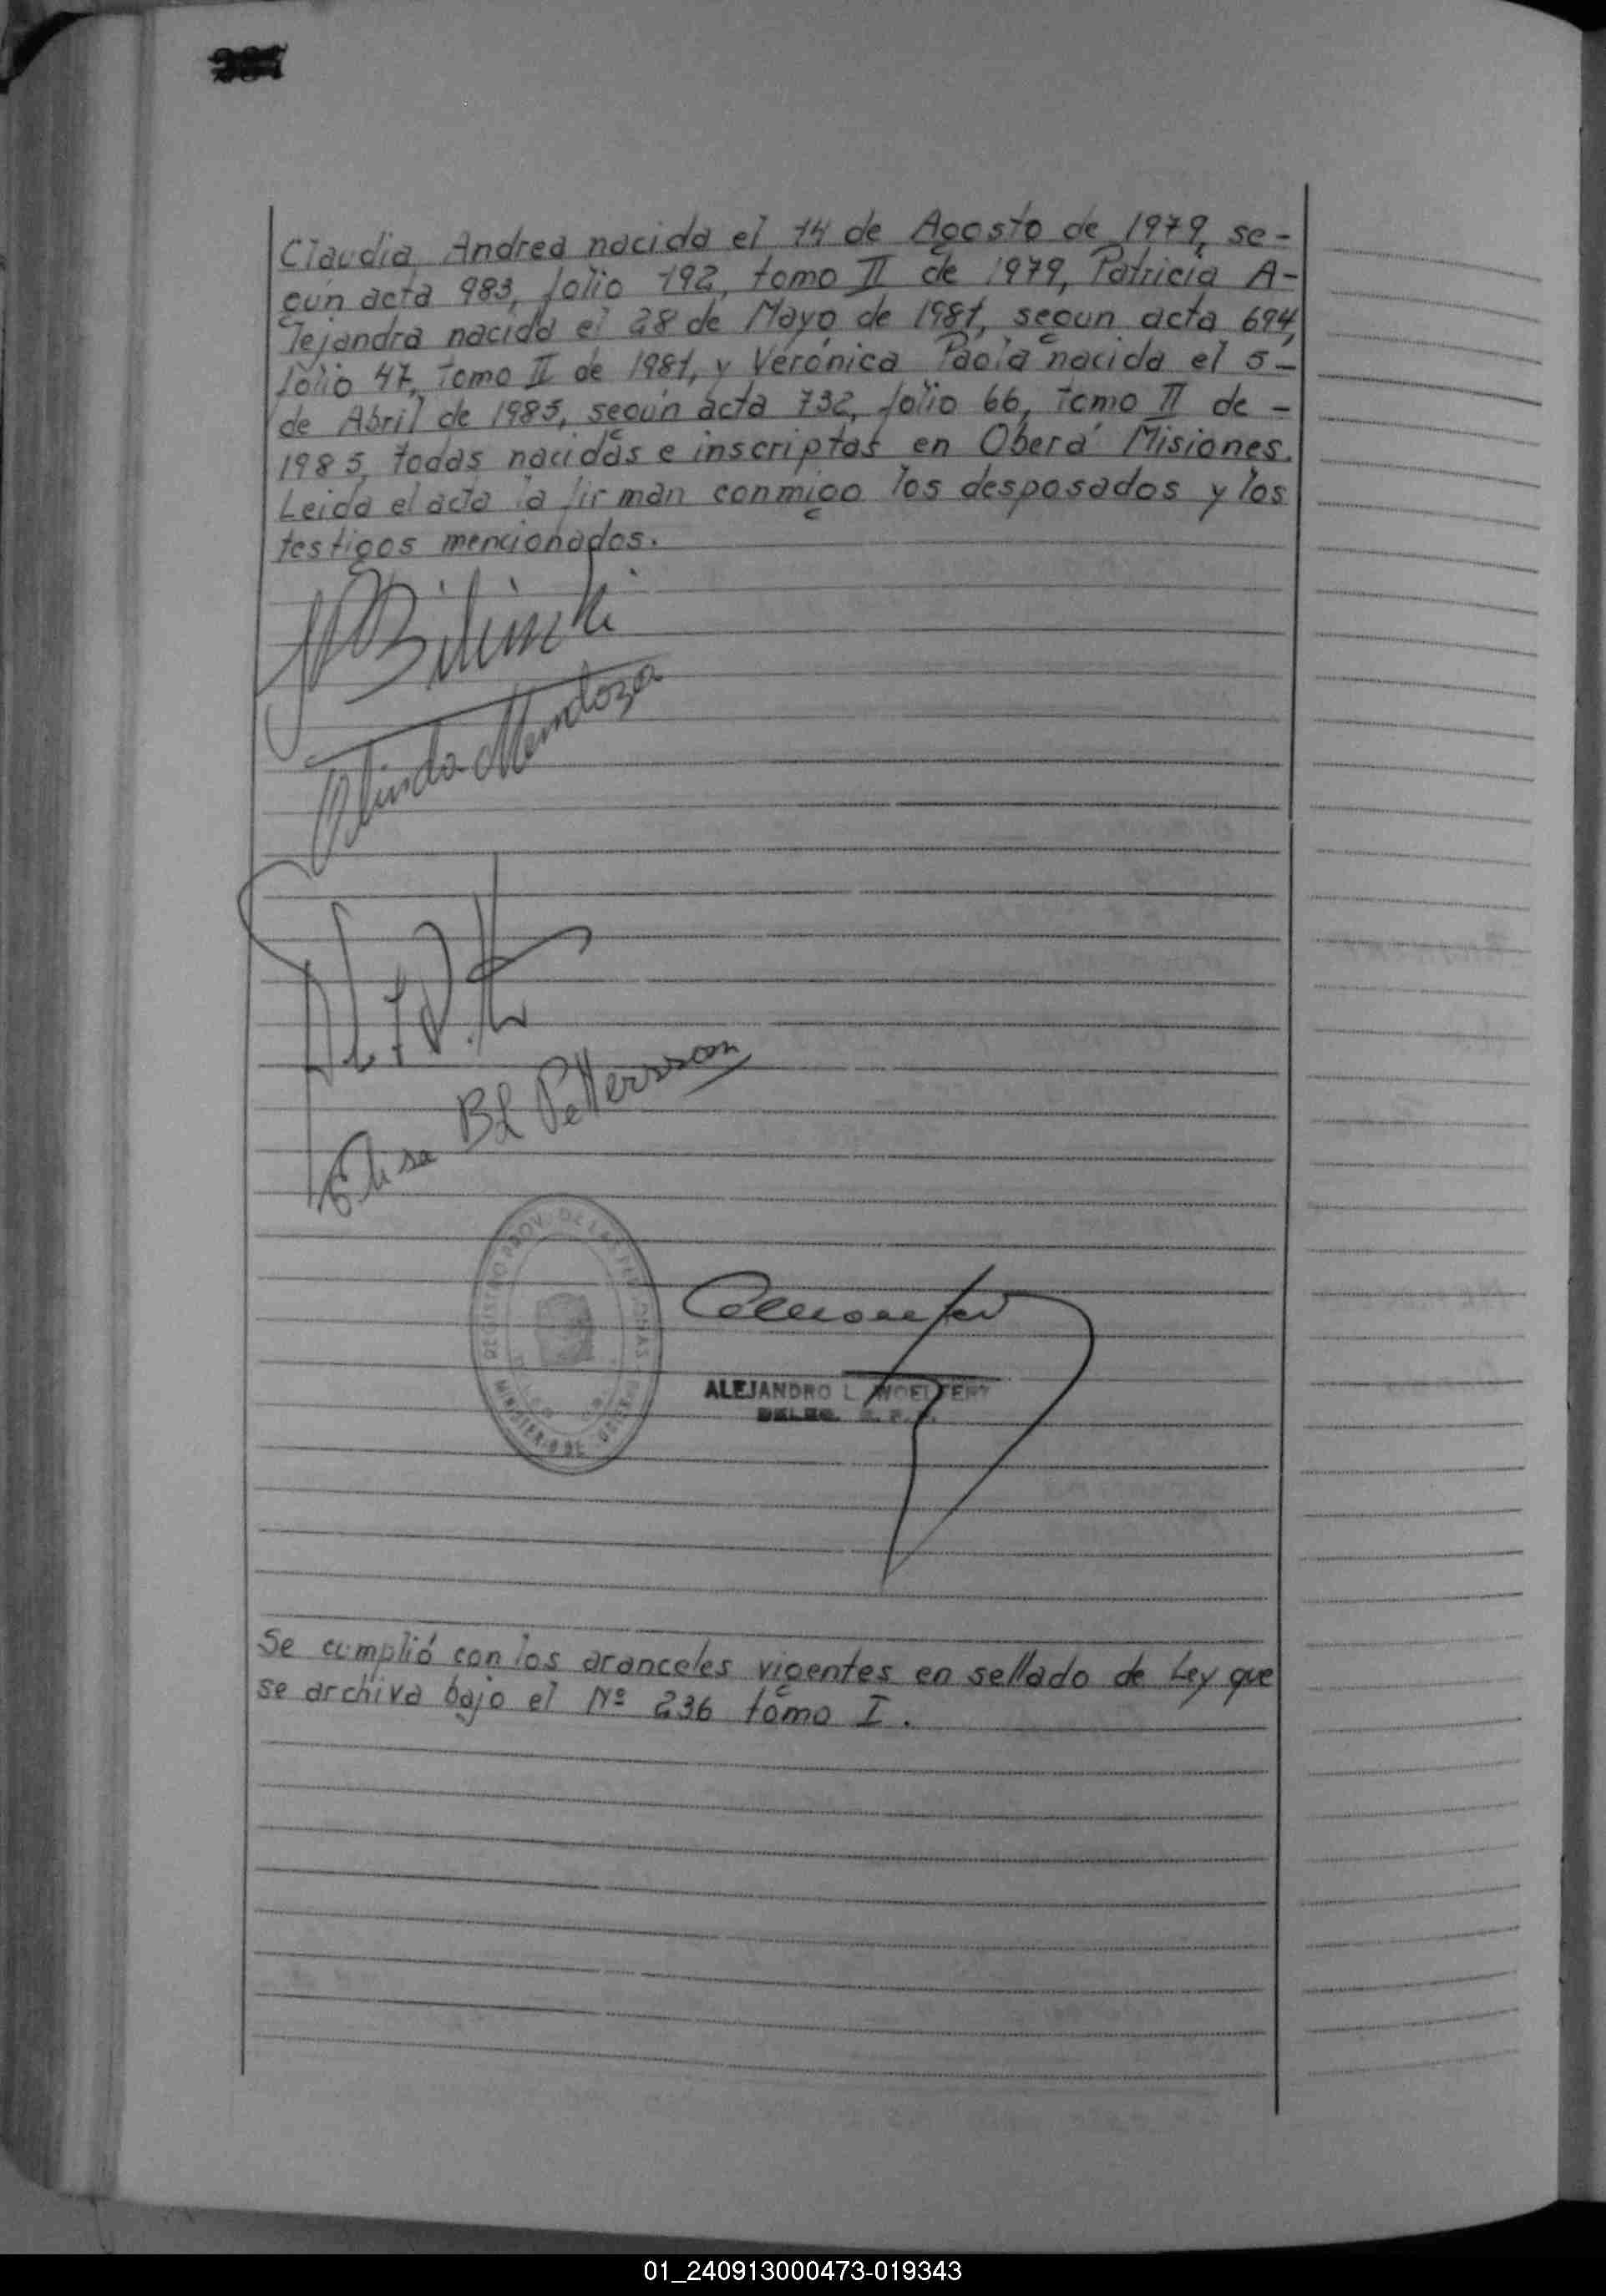 Claudia Andrea nacida el 14 de Agosto de 1979, se-
gún acta 983, folio 192, tomo II de 1979, Patricia A-
lejandra nacida el 28 de Mayo de 1981, segun acta 694,
folio 47, Tomo II de 1981, y Verónica Paola nacida el 5-
de Abril de 1985, según acta 732, folio 66, Tomo II de -
1985, todas nacidas e inscriptas en Oberá Misiones.
Leida el acta la firman conmigo los desposados y los
testigos mencionados.
Bilinski
Olinda Mendoza
Elisa BL Pettersson
REGISTRO PROV. DE LAS PERSONAS
MINISTERIO DE GOBIERNO
ALEJANDRO L. WOELFERT
DELEG. R. P. P.
Se cumplió con los aranceles vigentes en sellado de Ley que
se archiva bajo el Nº 236 tomo I.
01_240913000473-019343